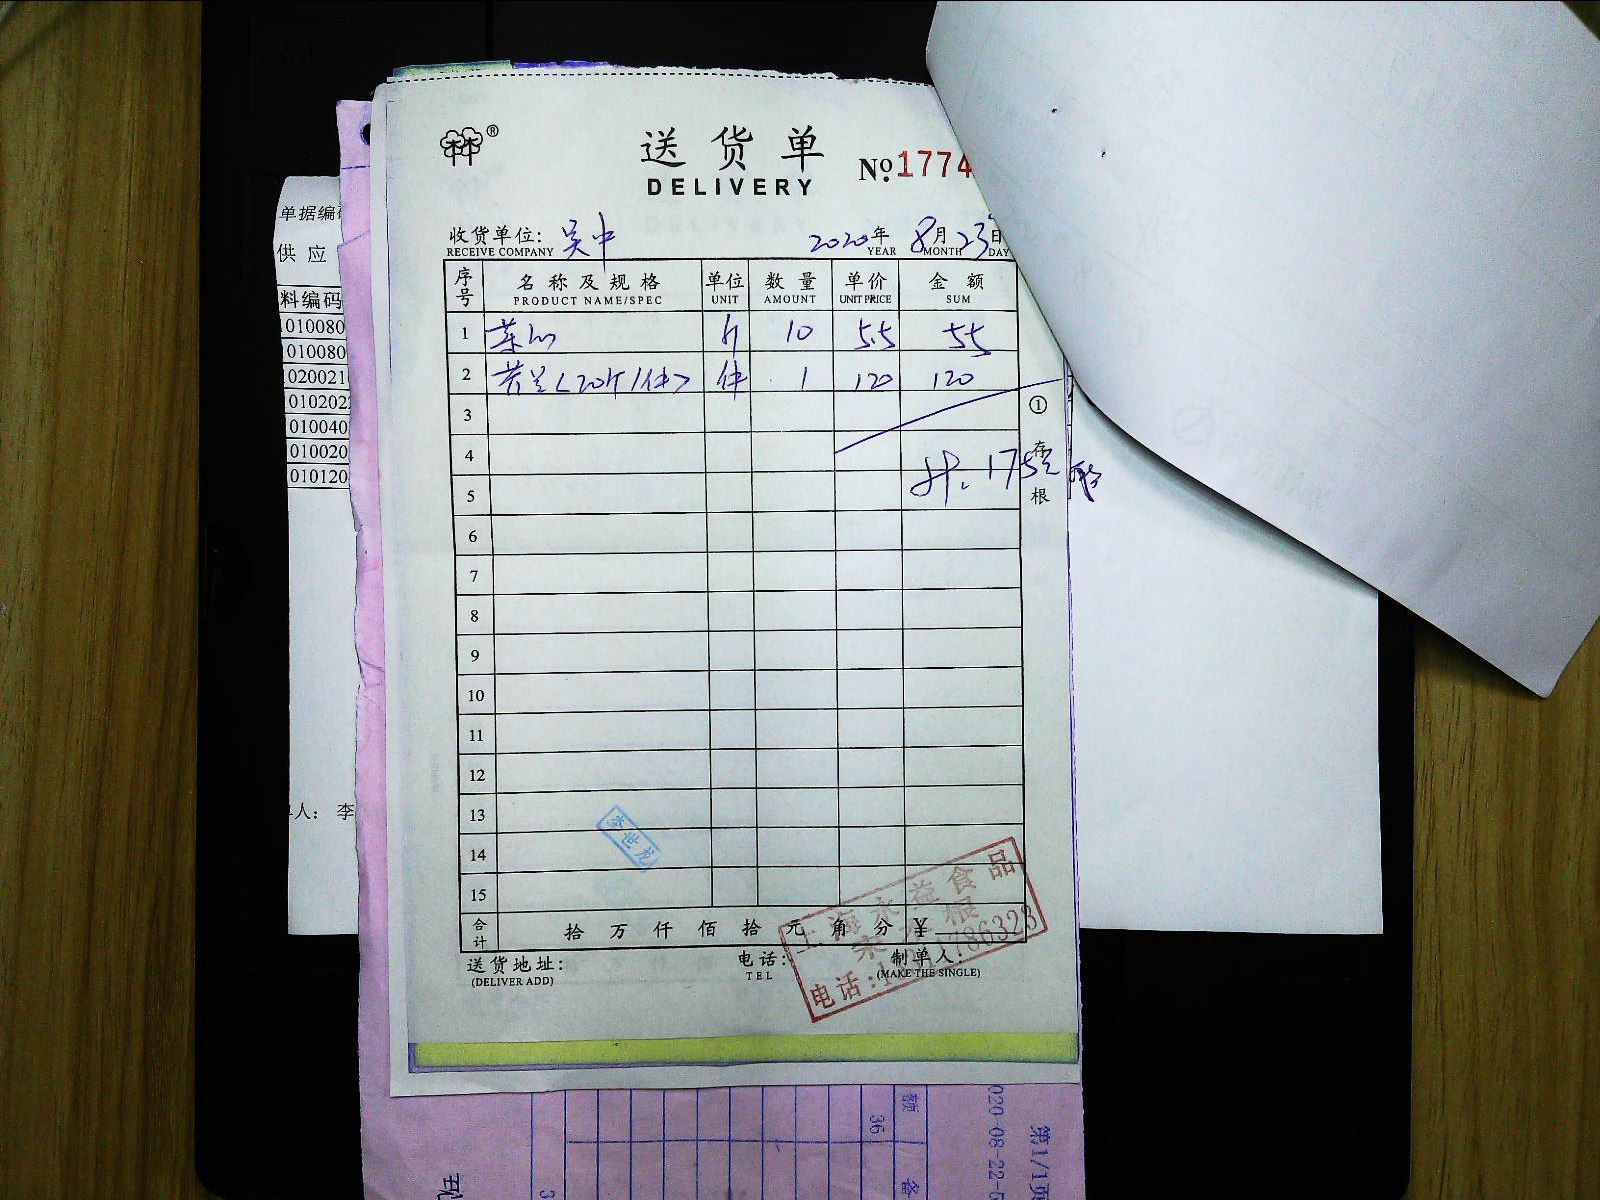 送货单
DELIVERY
№ 1774
收货单位: 吴中
RECEIVE COMPANY
2020年 8月 23日
YEAR MONTH DAY
序号 名称及规格 单位 数量 单价 金额
PRODUCT NAME/SPEC UNIT AMOUNT UNIT PRICE SUM
1 菜心 斤 10 5.5 55
2 苦苣(20斤/件) 件 1 120 120
3
4
5
计: 175元
6
7
8
9
10
11
12
13
14
15
① 存根
李世龙
合计 拾 万 仟 佰 拾 元 角 分 ¥
送货地址: 电话: 制单人:
(DELIVER ADD) TEL (MAKE THE SINGLE)
上海永益食品
电话:
786323
单据编
供 应
料编码
010080
010080
020021
010202
010040
010020
010120
人: 李
额
36
备
020-08-22
第1/1页